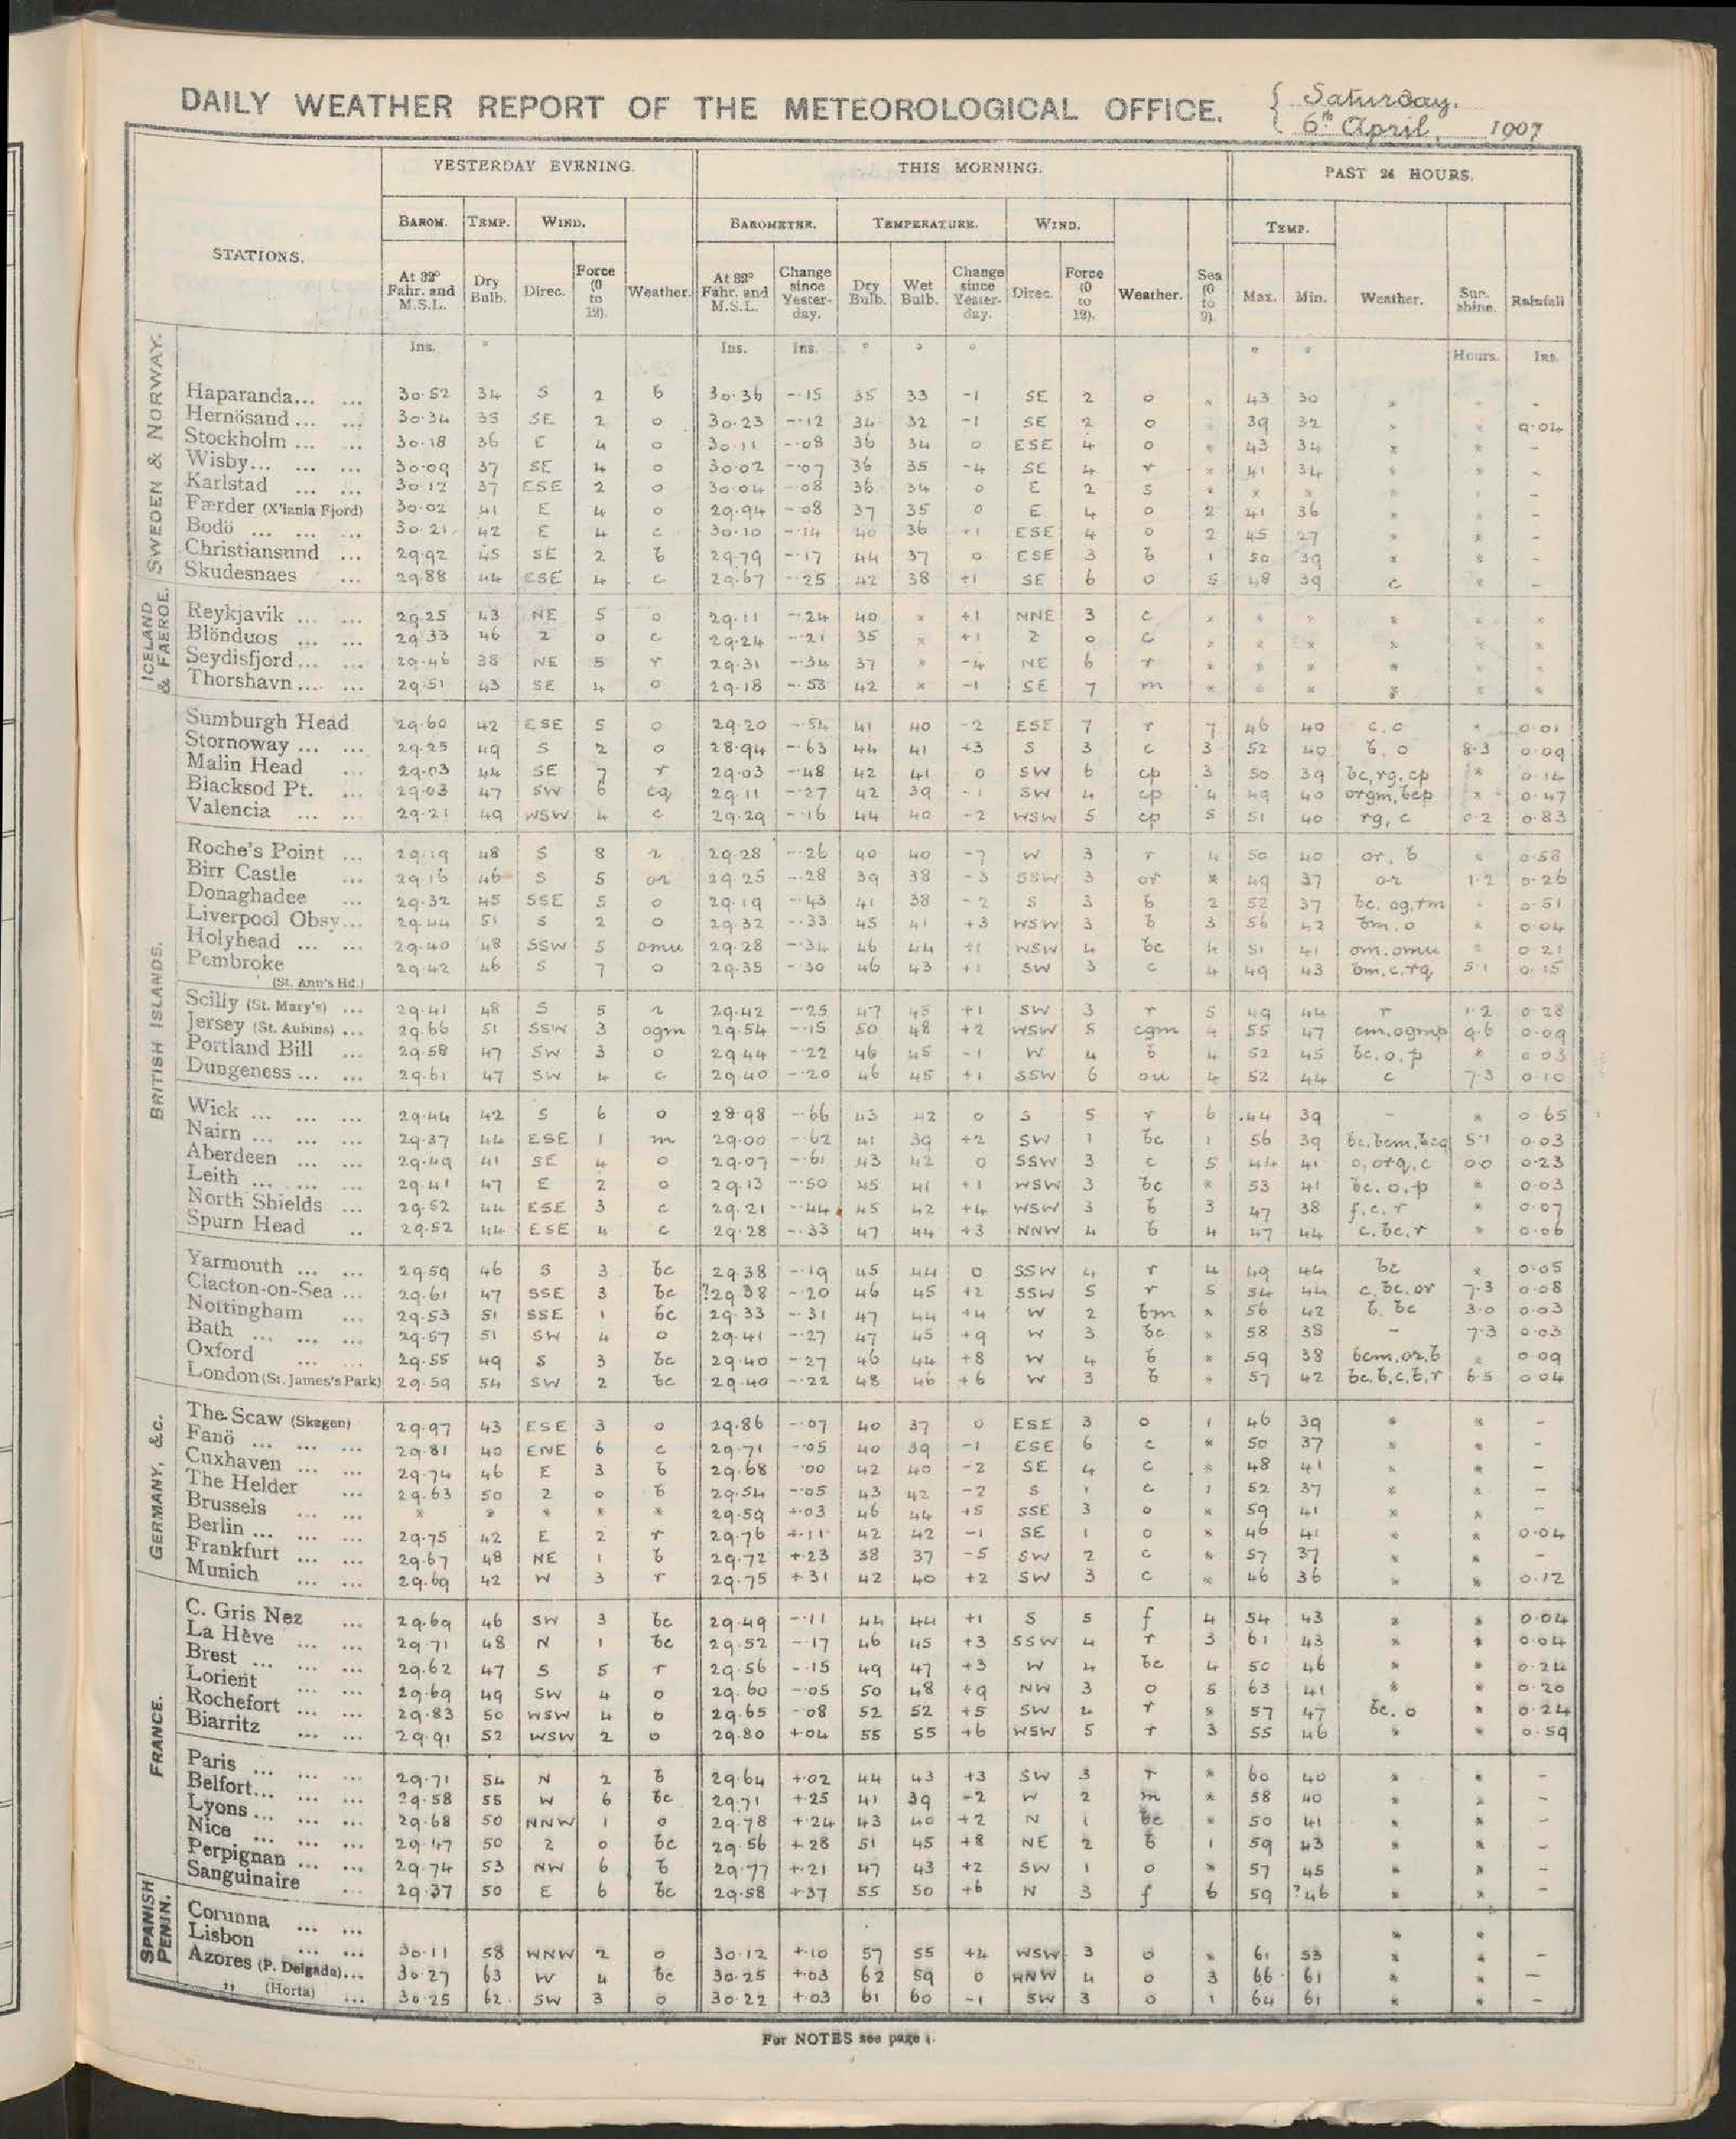 DAILY WEATHER REPORT OF THE METEOROLOGICAL OFFICE. { Saturday.
6th April, 1907
YESTERDAY EVENING. THIS MORNING. PAST 24 HOURS.
STATIONS. BAROM. TEMP. WIND. BAROMETER. TEMPERATURE. WIND. TEMP.
At 32° Fahr. and M.S.L. Dry Bulb. Direc. Force (0 to 12). Weather. At 32° Fahr. and M.S.L. Change since Yesterday. Dry Bulb. Wet Bulb. Change since Yesterday. Direc. Force (0 to 12). Weather. Sea (0 to 9). Max. Min. Weather. Sunshine. Rainfall
Ins. ° Ins. Ins. ° ° ° ° ° Hours. Ins.
SWEDEN & NORWAY.
Haparanda... ... 30.52 34 S 2 b 30.36 -.15 35 33 -1 SE 2 o * 43 30 * - -
Hernösand ... ... 30.34 35 SE 2 o 30.23 -.12 34 32 -1 SE 2 o * 39 32 * * 0.04
Stockholm ... ... 30.18 36 E 4 o 30.11 -.08 36 34 0 ESE 4 o * 43 34 * * -
Wisby... ... ... 30.09 37 SE 4 o 30.02 -.07 36 35 -4 SE 4 r * 41 34 * * -
Karlstad ... ... 30.12 37 ESE 2 o 30.04 -.08 36 34 0 E 2 s * * * * * -
Færder (X'iania Fjord) 30.02 41 E 4 o 29.94 -.08 37 35 0 E 4 o 2 41 36 * * -
Bodö ... ... ... 30.21 42 E 4 c 30.10 -.14 40 36 +1 ESE 4 o 2 45 27 * * -
Christiansund ... 29.92 45 SE 2 b 29.79 -.17 44 37 0 ESE 3 b 1 50 39 * * -
Skudesnaes ... 29.88 44 ESE 4 c 29.67 -.25 42 38 +1 SE 6 o 5 48 39 c * -
ICELAND & FAEROE.
Reykjavik ... ... 29.25 43 NE 5 o 29.11 -.24 40 * +1 NNE 3 c * * * * * *
Blönduos ... ... 29.33 46 Z 0 c 29.24 -.21 35 * +1 Z 0 c * * * * * *
Seydisfjord... ... 29.46 38 NE 5 r 29.31 -.34 37 * -4 NE 6 r * * * * * *
Thorshavn ... ... 29.51 43 SE 4 o 29.18 -.53 42 * -1 SE 7 m * * * * * *
BRITISH ISLANDS.
Sumburgh Head 29.60 42 ESE 5 o 29.20 -.54 41 40 -2 ESE 7 r 7 46 40 c.o * 0.01
Stornoway ... ... 29.25 49 S 2 o 28.94 -.63 44 41 +3 S 3 c 3 52 40 b.o 8.3 0.09
Malin Head ... 29.03 44 SE 7 r 29.03 -.48 42 41 0 SW 6 cp 3 50 39 bc,rg,cp * 0.14
Blacksod Pt. ... 29.03 47 SW 6 cq 29.11 -.27 42 39 -1 SW 4 cp 4 49 40 orgm,bcp * 0.47
Valencia ... ... 29.21 49 WSW 4 c 29.29 -.16 44 40 -2 WSW 5 cp 5 51 40 rg, c 0.2 0.83
Roche's Point ... 29.19 48 S 8 r 29.28 -.26 40 40 -7 W 3 r 4 50 40 or, b * 0.58
Birr Castle ... 29.16 46 S 5 or 29.25 -.28 39 38 -3 SSW 3 or * 49 37 or 1.2 0.26
Donaghadee ... 29.32 45 SSE 5 o 29.19 -.43 41 38 -2 S 3 b 2 52 37 bc. og,rm * 0.51
Liverpool Obsy... 29.44 51 S 2 o 29.32 -.33 45 41 +3 WSW 3 b 3 56 42 bm.o * 0.04
Holyhead ... ... 29.40 48 SSW 5 omu 29.28 -.34 46 44 +1 WSW 4 bc 4 51 41 om.omu * 0.21
Pembroke 29.42 46 S 7 o 29.35 -.30 46 43 +1 SW 3 c 4 49 43 bm,c,rq 5.1 0.15
(St. Ann's Hd.)
Scilly (St. Mary's) ... 29.41 48 S 5 r 29.42 -.25 47 45 +1 SW 3 r 5 49 44 r 1.2 0.28
Jersey (St. Aubins) ... 29.66 51 SSW 3 ogm 29.54 -.15 50 48 +2 WSW 5 cgm 4 55 47 cm,ogmp 9.6 0.09
Portland Bill ... 29.58 47 SW 3 o 29.44 -.22 46 45 -1 W 4 b 4 52 45 bc.o.p * 0.03
Dungeness ... ... 29.61 47 SW 4 c 29.40 -.20 46 45 +1 SSW 6 ou 4 52 44 c 7.3 0.10
Wick ... ... ... 29.44 42 S 6 o 28.98 -.66 43 42 0 S 5 r 6 44 39 - * 0.65
Nairn ... ... ... 29.37 44 ESE 1 m 29.00 -.62 41 39 +2 SW 1 bc 1 56 39 bc.bcm,bcq 5.1 0.03
Aberdeen ... ... 29.49 41 SE 4 o 29.07 -.61 43 42 0 SSW 3 c 5 44 41 o,orq,c 0.0 0.23
Leith ... ... ... 29.41 47 E 2 o 29.13 -.50 45 41 +1 WSW 3 bc * 53 41 bc.o,p * 0.03
North Shields ... 29.52 44 ESE 3 c 29.21 -.44 45 42 +4 WSW 3 b 3 47 38 f,c,r * 0.07
Spurn Head .. 29.52 44 ESE 4 c 29.28 -.33 47 44 +3 NNW 4 b 4 47 44 c.bc,r * 0.06
Yarmouth ... ... 29.59 46 S 3 bc 29.38 -.19 45 44 0 SSW 4 r 4 49 44 bc * 0.05
Clacton-on-Sea ... 29.61 47 SSE 3 bc ?29.38 -.20 46 45 +2 SSW 5 r 5 54 44 c,bc.or 7.3 0.08
Nottingham ... 29.53 51 SSE 1 bc 29.33 -.31 47 44 +4 W 2 bm * 56 42 b.bc 3.0 0.03
Bath ... ... ... 29.57 51 SW 4 o 29.41 -.27 47 45 +9 W 3 bc * 58 38 - 7.3 0.03
Oxford ... ... 29.55 49 S 3 bc 29.40 -.27 46 44 +8 W 4 b * 59 38 bcm,or,b * 0.09
London (St. James's Park) 29.59 54 SW 2 bc 29.40 -.22 48 46 +6 W 3 b * 57 42 bc,b,c,b,r 6.5 0.04
GERMANY, &c.
The Scaw (Skagen) 29.97 43 ESE 3 o 29.86 -.07 40 37 0 ESE 3 o 1 46 39 * * -
Fanö ... ... ... 29.81 40 ENE 6 c 29.71 -.05 40 39 -1 ESE 6 c * 50 37 * * -
Cuxhaven ... ... 29.74 46 E 3 b 29.68 .00 42 40 -2 SE 4 c * 48 41 * * -
The Helder ... 29.63 50 Z 0 b 29.54 -.05 43 42 -2 S 1 c 1 52 37 * * -
Brussels ... ... * * * * * 29.59 +.03 46 44 +5 SSE 3 o * 59 41 * * -
Berlin ... ... ... 29.75 42 E 2 r 29.76 +.11 42 42 -1 SE 1 o * 46 41 * * 0.04
Frankfurt ... ... 29.67 48 NE 1 b 29.72 +.23 38 37 -5 SW 2 c * 57 37 * * -
Munich ... ... 29.69 42 W 3 r 29.75 +.31 42 40 +2 SW 3 c * 46 36 * * 0.12
FRANCE.
C. Gris Nez ... 29.69 46 SW 3 bc 29.49 -.11 44 44 +1 S 5 f 4 54 43 * * 0.04
La Hève ... ... 29.71 48 N 1 bc 29.52 -.17 46 45 +3 SSW 4 r 3 61 43 * * 0.04
Brest ... ... ... 29.62 47 S 5 r 29.56 -.15 49 47 +3 W 4 bc 4 50 46 * * 0.24
Lorient ... ... 29.69 49 SW 4 o 29.60 -.05 50 48 +9 NW 3 o 5 63 41 * * 0.20
Rochefort ... ... 29.83 50 WSW 4 o 29.65 -.08 52 52 +5 SW 4 r * 57 47 bc.o * 0.24
Biarritz ... ... 29.91 52 WSW 2 o 29.80 +.04 55 55 +6 WSW 5 r 3 55 46 * * 0.59
Paris ... ... ... 29.71 54 N 2 b 29.64 +.02 44 43 +3 SW 3 r * 60 40 * * -
Belfort... ... ... 29.58 55 W 6 bc 29.71 +.25 41 39 -2 W 2 m * 58 40 * * -
Lyons ... ... ... 29.68 50 NNW 1 o 29.78 +.24 43 40 +2 N 1 bc * 50 41 * * -
Nice ... ... ... 29.47 50 Z 0 bc 29.56 +.28 51 45 +8 NE 2 b 1 59 43 * * -
Perpignan ... ... 29.74 53 NW 6 b 29.77 +.21 47 43 +2 SW 1 o * 57 45 * * -
Sanguinaire ... 29.37 50 E 6 bc 29.58 +.37 55 50 +6 N 3 f 6 59 ?46 * * -
SPANISH PENIN.
Corunna ... ... * *
Lisbon ... ... 30.11 58 WNW 2 o 30.12 +.10 57 55 +4 WSW 3 o * 61 53 * * -
Azores (P. Delgada)... 30.27 63 W 4 bc 30.25 +.03 62 59 0 WNW 4 o 3 66 61 * * -
,, (Horta) ... 30.25 62 SW 3 o 30.22 +.03 61 60 -1 SW 3 o 1 64 61 * * -
For NOTES see page 4.